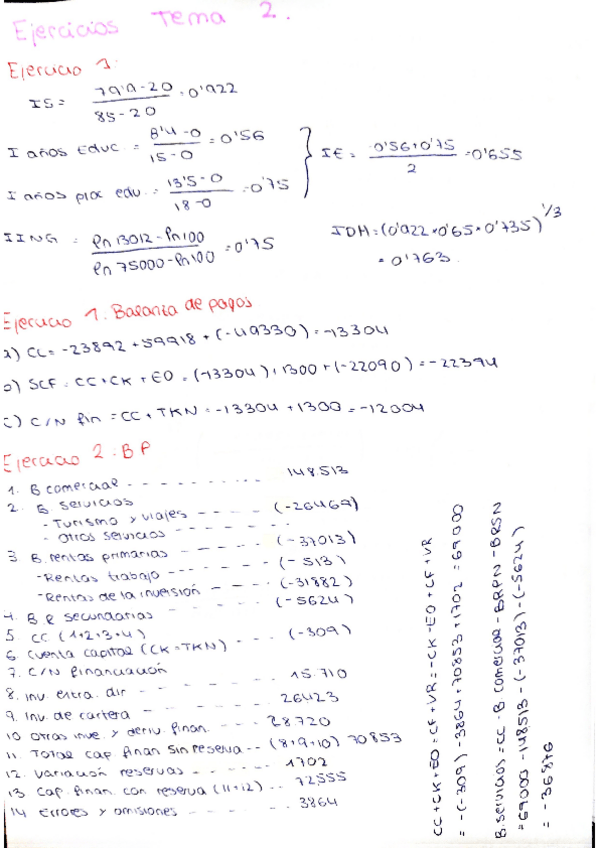 Ejercicios Tema 2.
Ejercicio 1:
IS = (79'9-20)/(85-20) = 0'922
I años educ = (8'4-0)/(15-0) = 0'56
I años prox edu. = (13'5-0)/(18-0) = 0'75
IE = (0'56+0'75)/2 = 0'655
IING = (ln 13012 - ln 100)/(ln 75000 - ln 100) = 0'75
IDH = (0'922 * 0'65 * 0'735)^1/3
= 0'763.
Ejercicio 1. Balanza de pagos
a) CC = -23892 + 59918 + (-49330) = -13304
b) SCF = CC + CK + EO = (-13304) + 1300 + (-22090) = -22394
c) C/N fin = CC + TKN = -13304 + 1300 = -12004
Ejercicio 2. BP
1. B comercial - - - - - - - - - - 148.513
2. B servicios
- Turismo y viajes - - - - - (-26469)
- otros servicios - - - - - -
3. B. rentas primarias - - - - - (-37013)
- Rentas trabajo - - - - - - (-513)
- Rentas de la inversión - - - (-31882)
4. B R secundarias - - - - - - (-5624)
5. CC (1+2+3+4)
6. Cuenta capital (CK=TKN) - - - (-309)
7. C/N financiación
8. inv extra. dir - - - - - - 15.710
9. inv. de cartera - - - - - - 26423
10 otras inve. y deriv. finan. - - - 28720
11. Total cap finan sin reserva - - (8+9+10) 70853
12. variación reservas - - - - - - 1702
13 Cap. finan. con reserva (11+12) - - 72555
14 Errores y omisiones - - - - - - 3864
CC + CK + EO = CF + VR = -CK - EO + CF + VR
= -(-309) - 3864 + 70853 + 1702 = 69000
B. servicios = CC - B comercial - BRPN - BRSN
= 69000 - 148513 - (-37013) - (-5624)
= -36876